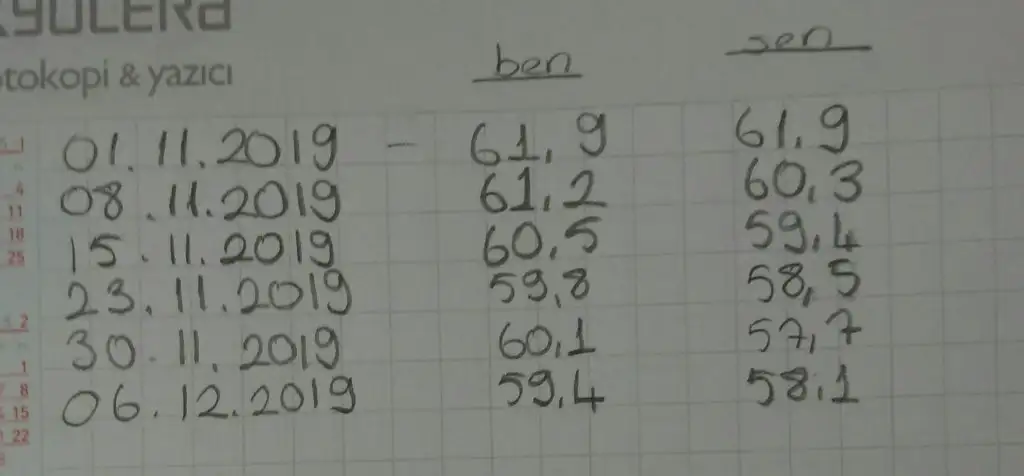 KYOCERa
tokopi & yazıcı
ben sen
01.11.2019 - 61,9 61,9
08.11.2019 61,2 60,3
15.11.2019 60,5 59,4
23.11.2019 59,8 58,5
30.11.2019 60,1 57,7
06.12.2019 59,4 58,1
4
11
18
25
2
1
8
15
22